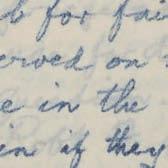 for fai
erved on
e in the
in if they